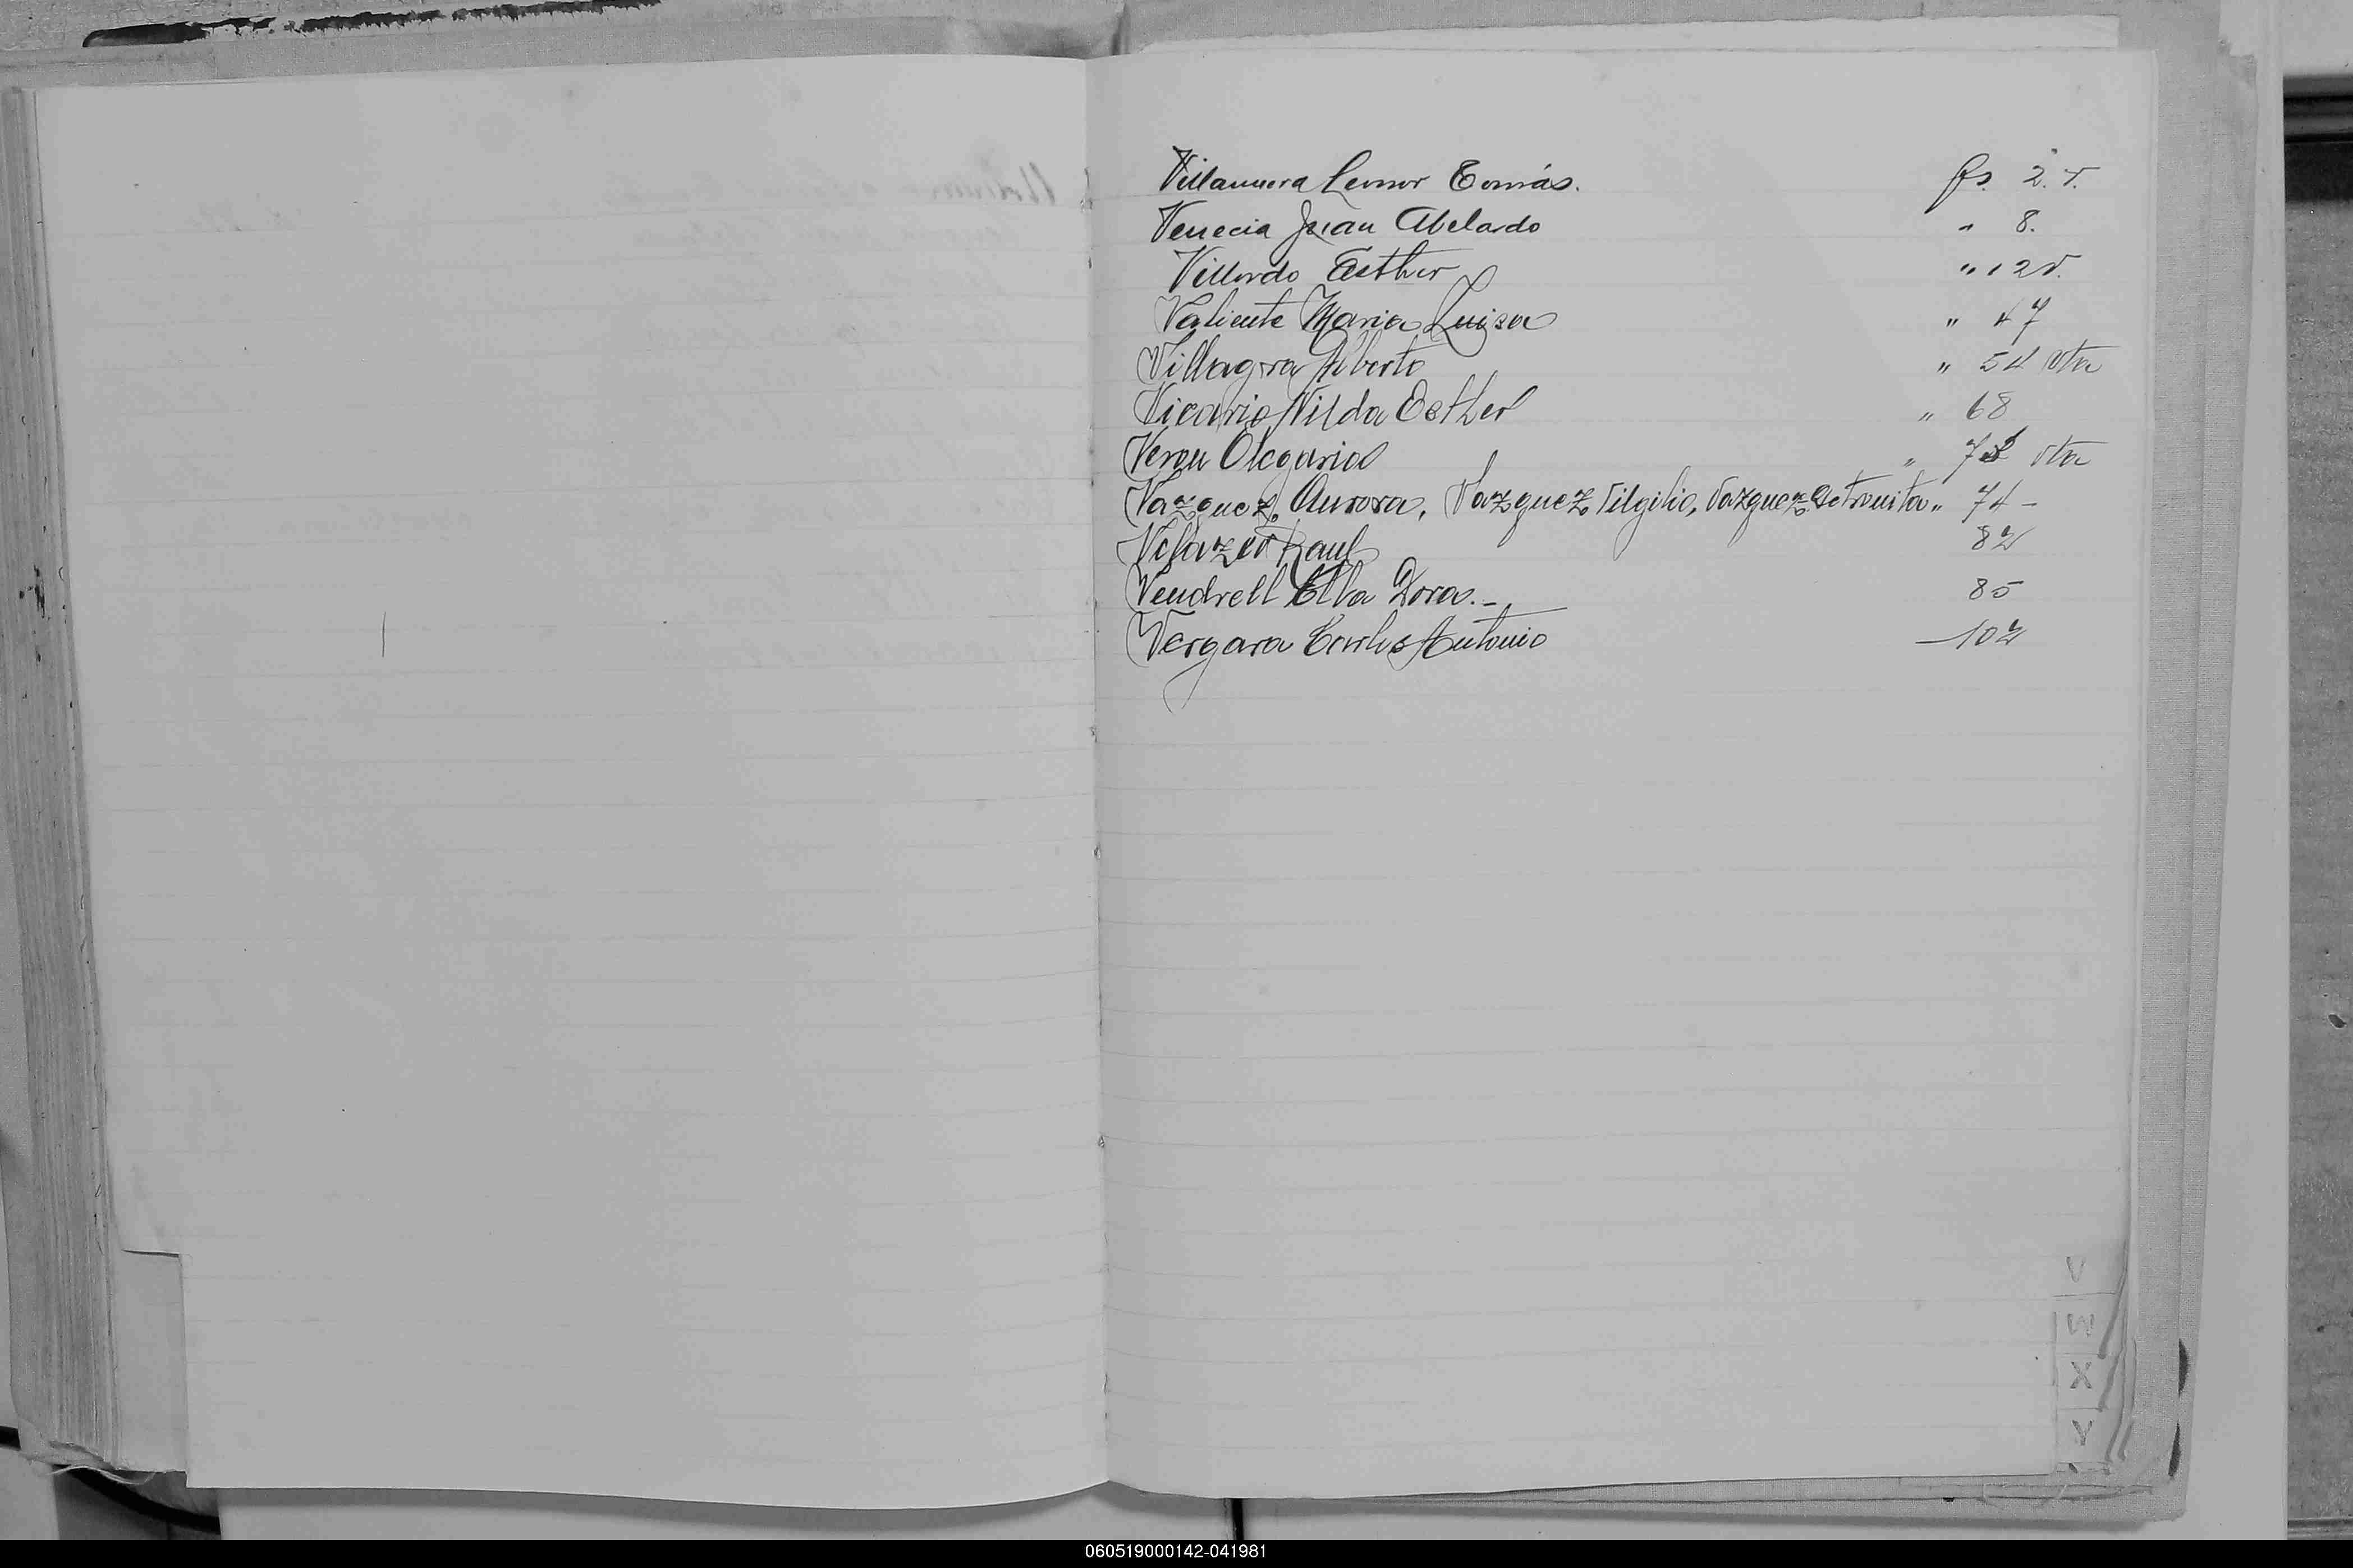 Villanueva Leonor Tomás. fs. 2. v.
Venecia Juan Abelardo " 8.
Villordo Esther " 12 v.
Valiente Maria Luisa " 47
Villagra Alberto " 54 vta
Vicario Nilda Esther " 68
Veron Olegario " vta
Vazquez, Aurora, Vazquez Vilgilio, Vazquez Petronita " 74 -
Raul 82
Vendrell Elba Dora.- 85
Vergara Carlos Antonio 102
V
W
X
Y
060519000142-041981